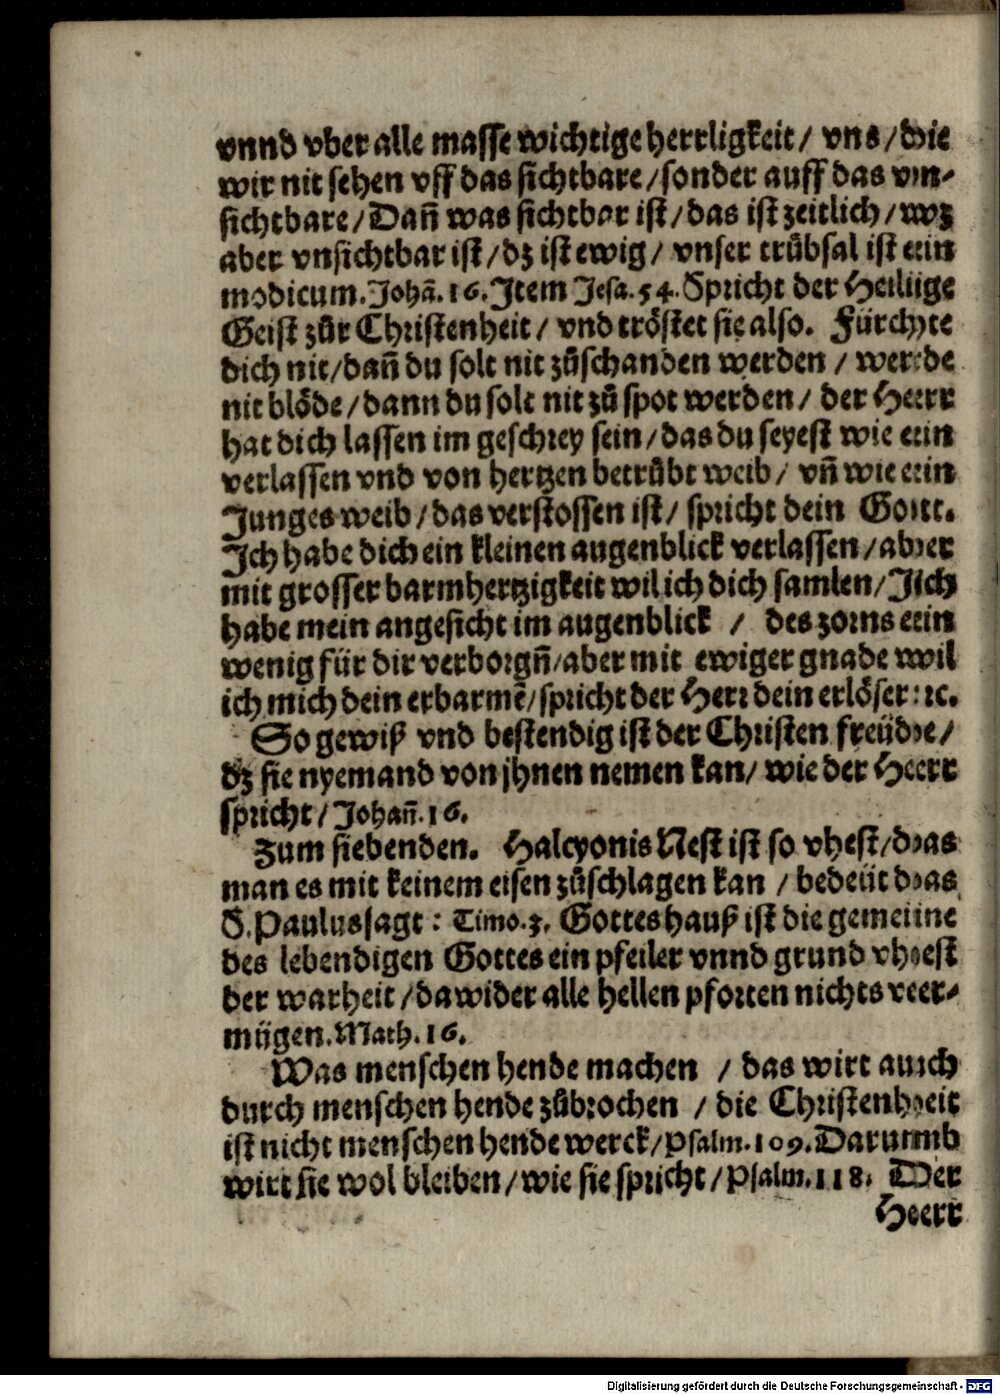 vnnd vber alle masse wichtige herrligkeit / vns / die
wir nit sehen vff das sichtbare / sonder auff das vn-
sichtbare / Dañ was sichtbar ist / das ist zeitlich / wz
aber vnsichtbar ist / dz ist ewig / vnser trůbsal ist ein
modicum. Johã. 16. Item Jesa. 54. Spricht der Heilige
Geist zůr Christenheit / vnd tröstet sie also. Fürchte
dich nit / dañ du solt nit zůschanden werden / werde
nit blöde / dann du solt nit zů spot werden / der Herr
hat dich lassen im geschrey sein / das du seyest wie ein
verlassen vnd von hertzen betrůbt weib / vñ wie ein
Junges weib / das verstossen ist / spricht dein Gott.
Ich habe dich ein kleinen augenblick verlassen / aber
mit grosser barmhertzigkeit wil ich dich samlen / Ich
habe mein angesicht im augenblick / des zorns ein
wenig für dir verborgñ / aber mit ewiger gnade wil
ich mich dein erbarmẽ / spricht der Herr dein erlöser : ꝛc.
So gewiß vnd bestendig ist der Christen freüde /
dz sie nyemand von jhnen nemen kan / wie der Heerr
spricht / Johañ. 16.
Zum siebenden. Halcyonis Nest ist so vhest / das
man es mit keinem eisen zůschlagen kan / bedeüt das
S. Paulus sagt : Timo. 3. Gottes hauß ist die gemeine
des lebendigen Gottes ein pfeiler vnnd grund vhest
der warheit / dawider alle hellen pforten nichts ver-
mügen. Math. 16.
Was menschen hende machen / das wirt auch
durch menschen hende zůbrochen / die Christenheit
ist nicht menschen hende werck / Psalm. 109. Darumb
wirt sie wol bleiben / wie sie spricht / Psalm. 118. Der
Heerr
Digitalisierung gefördert durch die Deutsche Forschungsgemeinschaft - DFG